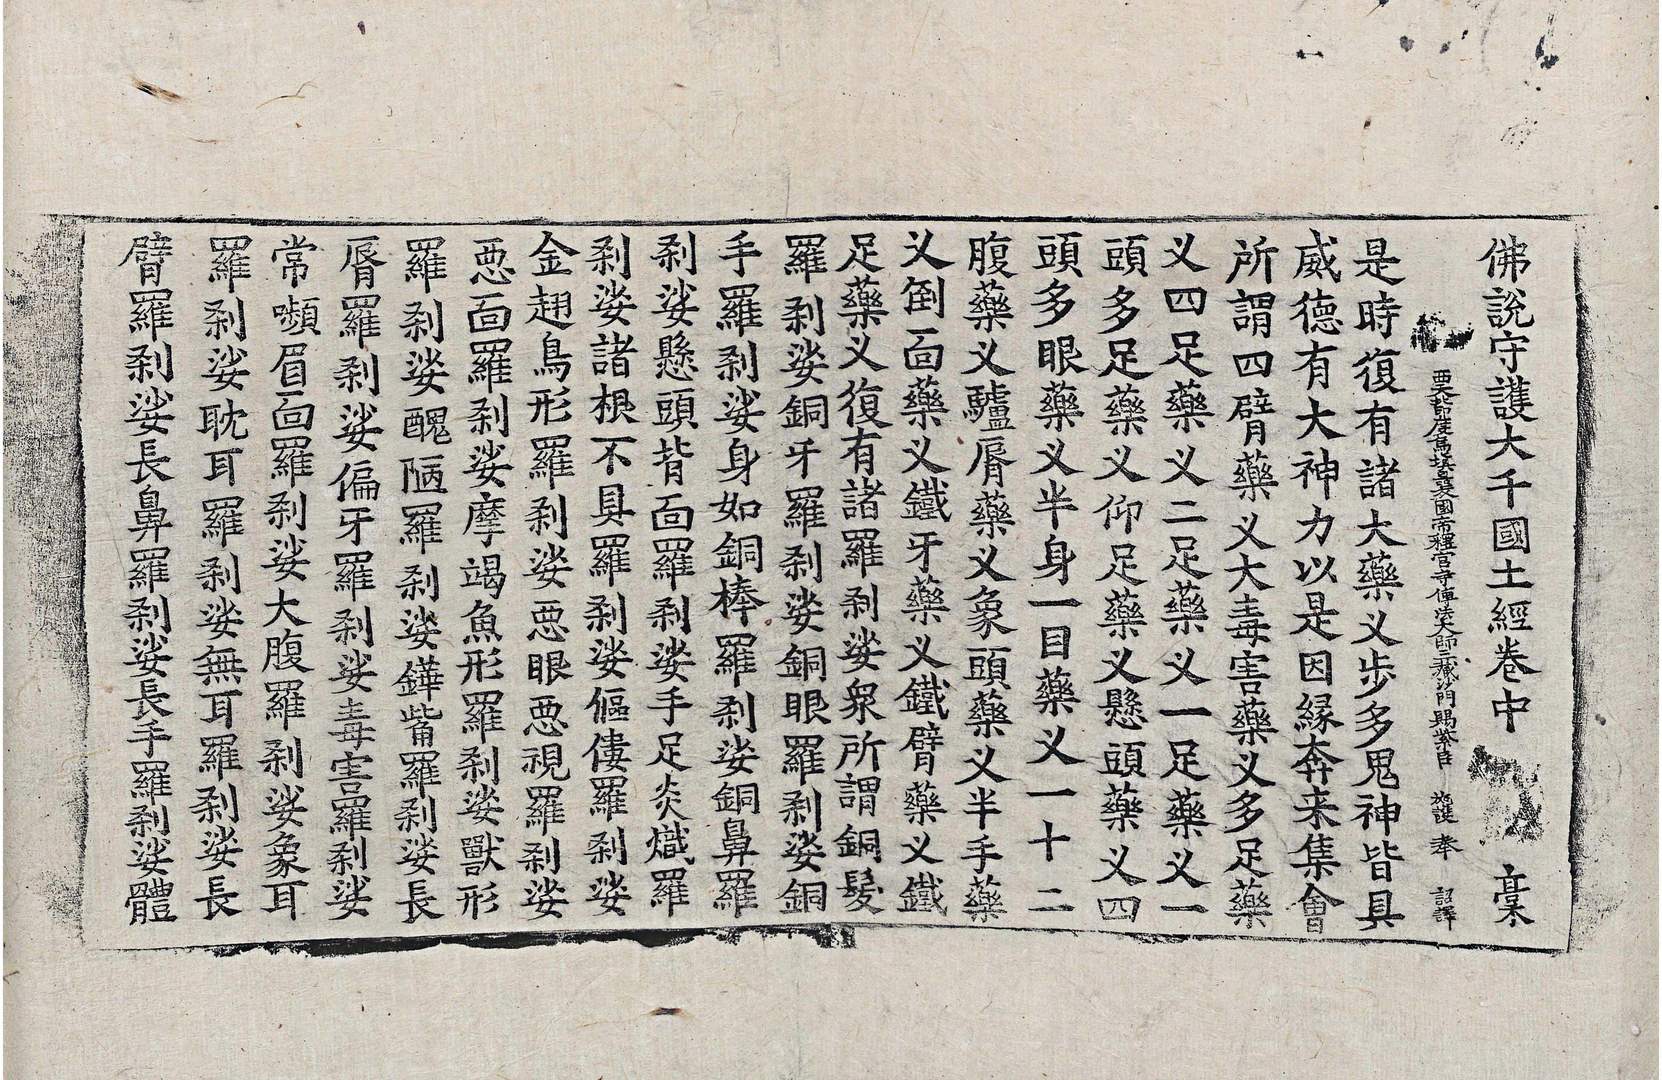 佛說守護大千國土經卷中 槀
西天北印度烏塡曩國帝釋宮寺傳法大師三藏沙門賜紫臣 施護 奉 詔譯
是時復有諸大藥义步多鬼神皆具
威德有大神力以是因縁奔来集會
所謂四臂藥义大毒害藥义多足藥
义四足藥义二足藥义一足藥义一
頭多足藥义仰足藥义懸頭藥义四
頭多眼藥义半身一目藥义一十二
腹藥义驢脣藥义象頭藥义半手藥
义倒面藥义鐵牙藥义鐵臂藥义鐵
足藥义復有諸羅刹娑衆所謂銅髮
羅刹娑銅牙羅刹娑銅眼羅刹娑銅
手羅刹娑身如銅棒羅刹娑銅鼻羅
刹娑懸頭背面羅刹娑手足炎熾羅
刹娑諸根不具羅刹娑傴僂羅刹娑
金翅鳥形羅刹娑惡眼惡視羅刹娑
惡面羅刹娑摩竭魚形羅刹娑獸形
羅刹娑醜陋羅刹娑鏵觜羅刹娑長
脣羅刹娑偏牙羅刹娑毒害羅刹娑
常嚬眉面羅刹娑大腹羅刹娑象耳
羅刹娑耽耳羅刹娑無耳羅刹娑長
臂羅刹娑長鼻羅刹娑長手羅刹娑體